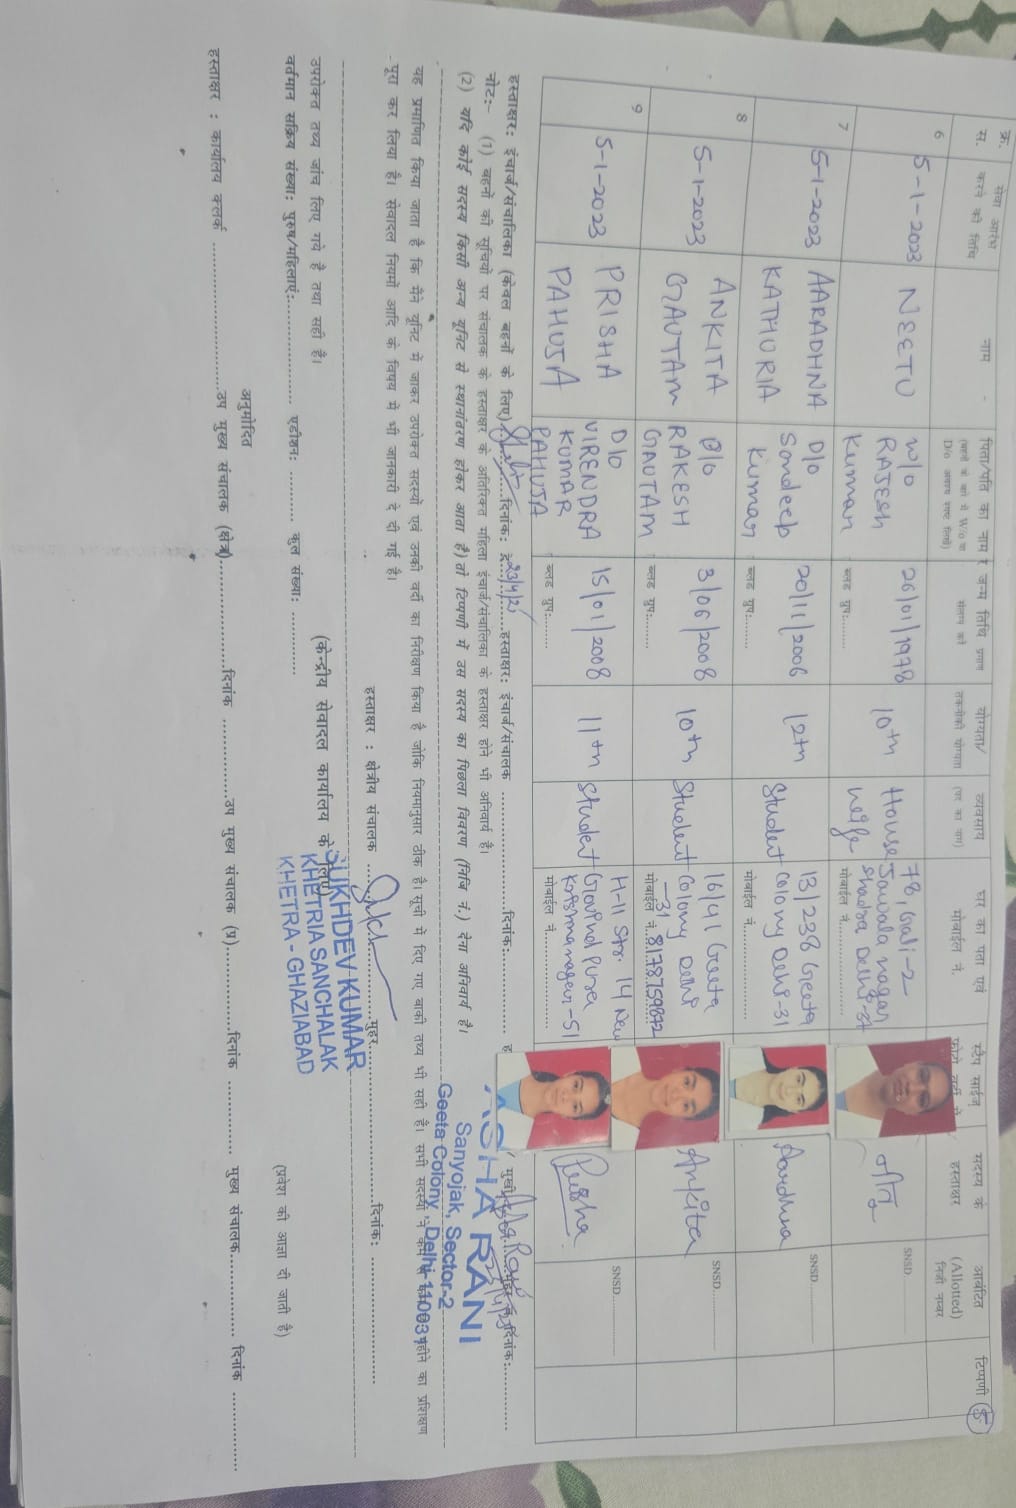 क्र. स.
सेवा आरंभ करने की तिथि
नाम
पिता/पति का नाम
(बहनों के बारे में W/o या D/o अवश्य स्पष्ट लिखें)
जन्म तिथि प्रमाण संलग्न करें
योग्यता/ तकनीकी योग्यता
व्यवसाय
घर का पता एवं मोबाईल नं.
स्टैंप साईज
सदस्य के हस्ताक्षर
आबंटित (Allotted) निजी नम्बर
टिप्पणी
5
6
5-1-2023
NEETU
W/o RAJESH Kumar
26/01/1978
ब्लड ग्रुप:......
10th
House wife
78, Gali-2 Jawala nagar Shadra Delhi-
मोबाईल नं..............
नीतू
SNSD
7
5-1-2023
AARADHNA KATHURIA
D/o Sandeep Kumar
20/11/2006
ब्लड ग्रुप:......
12th
Student
13/238 Geeta Colony Delhi-31
मोबाईल नं..............
Aardhna
SNSD
8
5-1-2023
ANKITA GAUTAM
D/o RAKESH GAUTAM
3/06/2008
ब्लड ग्रुप:......
10th
Student
16/41 Geeta Colony Delhi -31
मोबाईल नं. 8178759872
Ankita
SNSD
9
5-1-2023
PRISHA PAHUJA
D/o VIRENDRA KUMAR PAHUJA
15/01/2008
ब्लड ग्रुप:......
11th
Studet
H-11 Str. 14 New Govind Pura Krishna nagar-51
मोबाईल नं..............
Prisha
SNSD
हस्ताक्षर: इंचार्ज/संचालिका (केवल बहनों के लिए)..............दिनांक: 23/4/25 हस्ताक्षर: इंचार्ज/संचालक ..............दिनांक:..............
Asha Rani
दिनांक:..............
नोट:- (1) बहनों की सूचियों पर संचालक के हस्ताक्षर के अतिरिक्त महिला इंचार्ज/संचालिका के हस्ताक्षर होने भी अनिवार्य है।
(2) यदि कोई सदस्य किसी अन्य यूनिट से स्थानांतरण होकर आता है) तो टिप्पणी में उस सदस्य का पिछला विवरण (निजि नं.) देना अनिवार्य है।
ASHA RANI
Sanyojak, Sector-2
Geeta Colony, Delhi-110031
यह प्रमाणित किया जाता है कि मैंने यूनिट में जाकर उपरोक्त सदस्यों एवं उनकी वर्दी का निरीक्षण किया है जोकि नियमानुसार ठीक है। सूची में दिए गए बाकी तथ्य भी सही है। सभी सदस्यों ने कम से कम महीने का प्रशिक्षण
पूरा कर लिया है। सेवादल नियमों आदि के विषय में भी जानकारी दे दी गई है।
हस्ताक्षर : क्षेत्रीय संचालक ..............मुहर..............दिनांक: ..............
SUKHDEV KUMAR
KHETRIA SANCHALAK
KHETRA - GHAZIABAD
(केन्द्रीय सेवादल कार्यालय के लिए)
उपरोक्त तथ्य जांच लिए गये है तथा सही है।
वर्तमान सक्रिय संख्या: पुरुष/महिलाएं:.............. एडीशन: .......... कुल संख्या: ..........
(प्रवेश की आज्ञा दी जाती है)
अनुमोदित
हस्ताक्षर : कार्यालय क्लर्क ..............उप मुख्य संचालक (क्षेत्र)..............दिनांक ..............उप मुख्य संचालक (प्र)..............दिनांक .............. मुख्य संचालक.............. दिनांक ..............